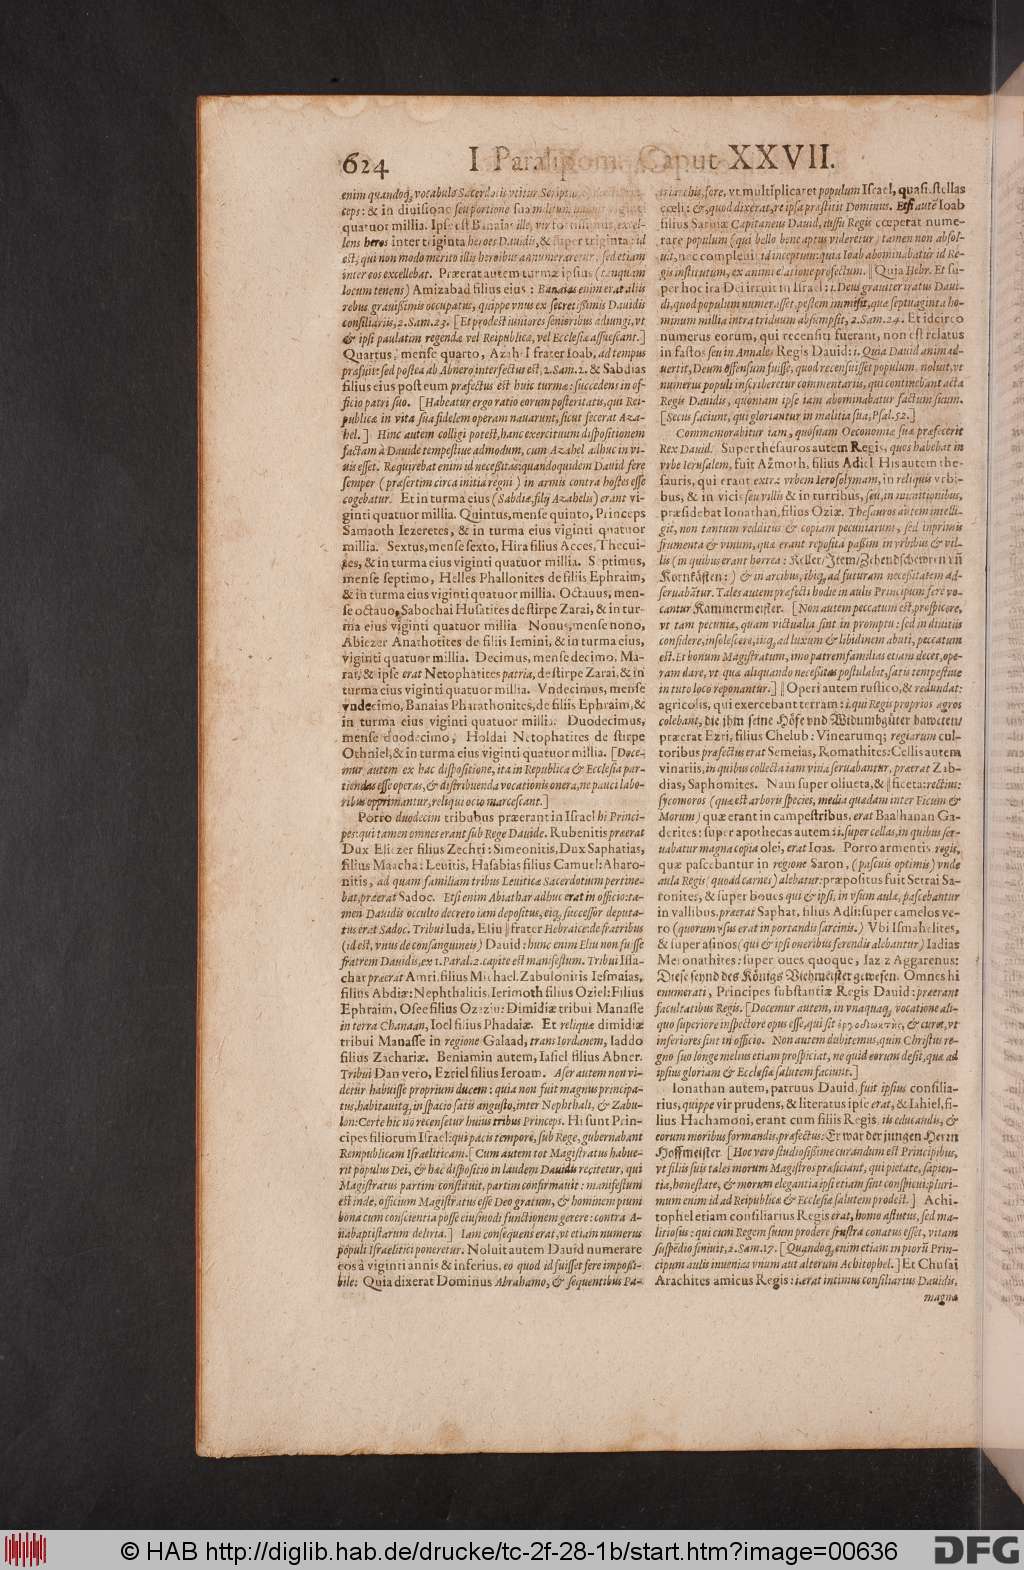 624 I Paralipom. Caput XXVII.
enim quandoq;, vocabulo Sacerdotis vtitur
ceps: & in diuisione seu portione sua militum, viginti
quatuor millia. Ipse est Banaias ille, virtute excel-
lens heros inter triginta heroes Dauidis, & super triginta: id
est, qui non modo merito illis heroibus annumeraretur, sed etiam
inter eos excellebat. Præerat autem turmæ ipsius (tanquam
locum tenens) Amizabad filius eius: Banaias enim erat aliis
rebus grauißimis occupatus, quippe vnus ex secretißimis Dauidis
consiliariis, 2. Sam. 23. [Et prodest iuniores senioribus adiungi, vt
& ipsi paulatim regendæ vel Reipublicæ, vel Ecclesiæ assuescant.]
Quartus, mense quarto, Azahel frater Ioab, ad tempus
præfuit: sed postea ab Abnero interfectus est, 2. Sam. 2. & Sabdias
filius eius post eum præfectus est huic turmæ: succedens in of-
ficio patri suo. [Habeatur ergo ratio eorum posteritatis, qui Rei-
publicæ in vita sua fidelem operam nauarunt, sicut fecerat Aza-
hel.] Hinc autem colligi potest, hanc exercituum dispositionem
factam à Dauide tempestiue admodum, cum Azahel adhuc in vi-
uis esset. Requirebat enim id necessitas: quandoquidem Dauid fere
semper (præsertim circa initia regni) in armis contra hostes esse
cogebatur. Et in turma eius (Sabdiæ, filij Azahelis) erant vi-
ginti quatuor millia. Quintus, mense quinto, Princeps
Samaoth Iezeretes, & in turma eius viginti quatuor
millia. Sextus, mense sexto, Hira filius Acces, Thecui-
tes, & in turma eius viginti quatuor millia. Septimus,
mense septimo, Helles Phallonites de filiis Ephraim,
& in turma eius viginti quatuor millia. Octauus, men-
se octauo, Sabochai Husatites de stirpe Zarai, & in tur-
ma eius viginti quatuor millia. Nonus, mense nono,
Abiezer Anathotites de filiis Iemini, & in turma eius,
viginti quatuor millia. Decimus, mense decimo, Ma-
rai, & ipse erat Netophatites patria, de stirpe Zarai, & in
turma eius viginti quatuor millia. Vndecimus, mense
vndecimo, Banaias Pharathonites, de filiis Ephraim, &
in turma eius viginti quatuor millia. Duodecimus,
mense duodecimo, Holdai Netophatites de stirpe
Othniel, & in turma eius viginti quatuor millia. [Doce-
mur autem ex hac dispositione, ita in Republica & Ecclesia par-
tiendas esse operas, & distribuenda vocationis onera, ne pauci labo-
ribus opprimantur, reliqui ocio marcescant.]
Porro duodecim tribubus præerant in Israel hi Princi-
pes: qui tamen omnes erant sub Rege Dauide. Rubenitis præerat
Dux Eliezer filius Zechri: Simeonitis, Dux Saphatias,
filius Maacha: Leuitis, Hasabias filius Camuel: Aharo-
nitis, ad quam familiam tribus Leuiticæ Sacerdotium pertine-
bat, præerat Sadoc. Etsi enim Abiathar adhuc erat in officio: ta-
men Dauidis occulto decreto iam depositus, eiq; successor deputa-
tus erat Sadoc. Tribui Iuda, Eliu ‖ frater Hebraice: de fratribus
(id est, vnus de consanguineis) Dauid: hunc enim Eliu non fuisse
fratrem Dauidis, ex 1. Paral. 2. capite est manifestum. Tribui Issa-
char præerat Amri, filius Michael. Zabulonitis Iesmaias,
filius Abdiæ: Nephthalitis, Ierimoth filius Oziel: Filius
Ephraim, Osee filius Ozaziu: Dimidiæ tribui Manasse
in terra Chanaan, Ioel filius Phadaiæ. Et reliquæ dimidiæ
tribui Manasse in regione Galaad, trans Iordanem, Iaddo
filius Zachariæ. Beniamin autem, Iasiel filius Abner.
Tribui Dan vero, Ezriel filius Ieroam. Aser autem non vi-
detur habuisse proprium ducem: quia non fuit magnus principa-
tus, habitauitq; in spacio satis angusto, inter Nephthali, & Zabu-
lon: Certe hic nō recensetur huius tribus Princeps. Hi sunt Prin-
cipes filiorum Israel: qui pacis tempore, sub Rege, gubernabant
Rempublicam Israeliticam. [Cum autem tot Magistratus habue-
rit populus Dei, & hæc dispositio in laudem Dauidis recitetur, qui
Magistratus partim constituit, partim confirmauit: manifestum
est inde, officium Magistratus esse Deo gratum, & hominem pium
bona cum conscientia posse eiusmodi functionem gerere: contra A-
nabaptistarum deliria.] Iam consequens erat, vt etiam numerus
populi Israelitici poneretur. Noluit autem Dauid numerare
eos à viginti annis & inferius, eo quod id fuisset fere impossi-
bile: Quia dixerat Dominus Abrahamo, & sequentibus Pa-
triarchis, fore, vt multiplicaret populum Israel, quasi stellas
cœli: & quod dixerat, re ipsa præstitit Dominus. Etsi autē Ioab
filius Saruiæ Capitaneus Dauid, iussu Regis cœperat nume-
rare populum (qui bello bene aptus videretur) tamen non absol-
uit, nec compleuit id inceptum: quia Ioab abominabatur id Re-
gis institutum, ex animi elatione profectum. ‖ Quia Hebr. Et su-
per hoc ira Dei irruit in Israel: i. Deus grauiter iratus Daui-
di, quod populum numerasset, pestem immisit, quæ septuaginta ho-
minum millia intra triduum absumpsit, 2. Sam. 24. Et idcirco
numerus eorum, qui recensiti fuerant, non est relatus
in fastos seu in Annales Regis Dauid: i. Quia Dauid animad-
uertit, Deum offensum fuisse, quod recensuisset populum, noluit, vt
numerus populi inscriberetur commentariis, qui continebant acta
Regis Dauidis, quoniam ipse iam abominabatur factum suum.
[Secus faciunt, qui gloriantur in malitia sua, Psal. 52.]
Commemorabitur iam, quosnam Oeconomiæ suæ præfecerit
Rex Dauid. Super thesauros autem Regis, quos habebat in
vrbe Ierusalem, fuit Azmoth, filius Adiel. His autem the-
sauris, qui erant extra vrbem Ierosolymam, in reliquis vrbi-
bus, & in vicis seu villis & in turribus, seu, in munitionibus,
præsidebat Ionathan, filius Oziæ. Thesauros autem intelli-
git, non tantum redditus & copiam pecuniarum, sed inprimis
frumenta & vinum, quæ erant reposita paßim in vrbibus & vil-
lis (in quibus erant horrea: Keller/ Item/ Zehendschewren vñ
Kornkästen:) & in arcibus, ibiq; ad futuram necessitatem ad-
seruabātur. Tales autem præfecti hodie in aulis Principum fere vo-
cantur Kammermeister. [Non autem peccatum est, prospicere,
vt tam pecuniæ, quam victualia sint in promptu: sed in diuitiis
confidere, insolescere, iisq; ad luxum & libidinem abuti, peccatum
est. Et bonum Magistratum, imo patremfamilias etiam decet, ope-
ram dare, vt quæ aliquando necessitas postulabit, satis tempestiue
in tuto loco reponantur.] ‖ Operi autem rustico, & redundat:
agricolis, qui exercebant terram: i. qui Regis proprios agros
colebant, die jhm seine Höfe vnd Widumbgüter baweten/
præerat Ezri, filius Chelub: Vinearumq; regiarum cul-
toribus præfectus erat Semeias, Romathites: Cellis autem
vinariis, in quibus collecta iam vina seruabantur, præerat Zab-
dias, Saphomites. Nam super oliueta, & ‖ ficeta: rectius:
sycomoros (quæ est arboris species, media quædam inter Ficum &
Morum) quæ erant in campestribus, erat Baalhanan Ga-
derites: super apothecas autem i. super cellas, in quibus ser-
uabatur magna copia olei, erat Ioas. Porro armentis regis,
quæ pascebantur in regione Saron, (pascuis optimis) vnde
aula Regis (quoad carnes) alebatur: præpositus fuit Setrai Sa-
ronites, & super boues qui & ipsi, in vsum aulæ, pascebantur
in vallibus, præerat Saphat, filius Adli: super camelos ve-
ro (quorum vsus erat in portandis sarcinis.) Vbi Ismahelites,
& super asinos, (qui & ipsi oneribus ferendis alebantur.) Iadias
Meronathites: super oues quoque, Iaziz Aggarenus:
Diese seynd des Königs Viehmeister gewesen. Omnes hi
enumerati, Principes substantiæ Regis Dauid: præerant
facultatibus Regis. [Docemur autem, in vnaquaq; vocatione ali-
quo superiore inspectore opus esse, qui sit ἐργοδιώκτης, & curet, vt
inferiores sint in officio. Non autem dubitemus, quin Christus re-
gno suo longe melius etiam prospiciat, ne quid eorum desit, quæ ad
ipsius gloriam & Ecclesiæ salutem faciunt.]
Ionathan autem, patruus Dauid, fuit ipsius consilia-
rius, quippe vir prudens, & literatus ipse erat, & Iahiel, fi-
lius Hachamoni, erant cum filiis Regis, iis educandis, &
eorum moribus formandis, præfectus: Er war der jungen Herrn
Hoffmeister. [Hoc vero studiosissime curandum est Principibus,
vt filiis suis tales morum Magistros præficiant, qui pietate, sapien-
tia, honestate, & morum elegantia ipsi etiam sint conspicui: pluri-
mum enim id ad Reipublicæ & Ecclesiæ salutem prodest.] Achi-
tophel etiam consiliarius Regis erat, homo astutus, sed ma-
litiosus: qui cum Regem suum prodere frustra conatus esset, vitam
suspēdio finiuit, 2. Sam. 17. [Quandoq; enim etiam in piorū Prin-
cipum aulis inuenias vnum aut alterum Achitophel.] Et Chusai
Arachites amicus Regis: i. erat intimus consiliarius Dauidis,
magna
© HAB http://diglib.hab.de/drucke/tc-2f-28-1b/start.htm?image=00636
DFG